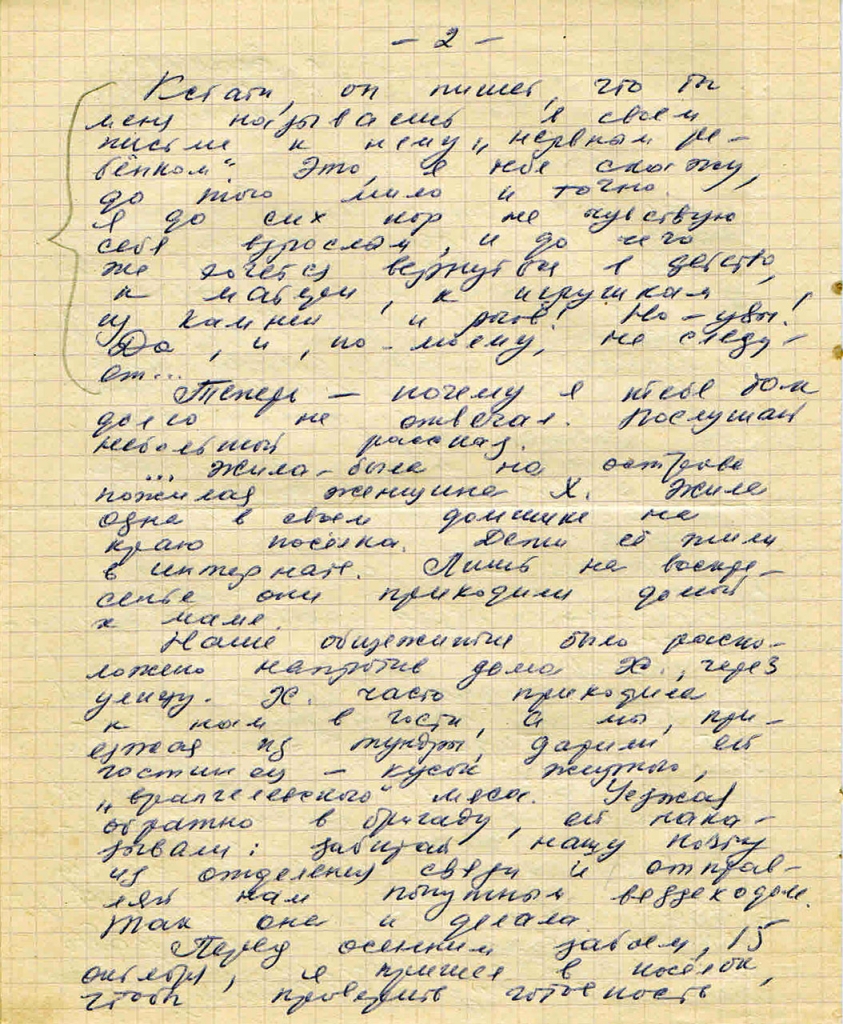 - 2 -
Кстати, он пишет, что ты
меня называешь в своём
письме к нему „нервным ре-
бёнком". Это, я тебе скажу,
до того мило и точно.
Я до сих пор не чувствую
себя взрослым, и до чего
же хочется вернуться в детство,
к мамам, к игрушкам
из камней и рыб! Но - увы!
Да, и, по-моему, не следу-
ет...
Теперь - почему я тебе так
долго не отвечал. Послушай
небольшой рассказ.
... Жила-была на острове
пожилая женщина Х. Жила
одна в своём домишке на
краю посёлка. Дети её жили
в интернате. Лишь на воскре-
сенье они приходили домой
к маме.
Наше общежитие было распо-
ложено напротив дома Х., через
улицу. Х. часто приходила
к нам в гости, а мы, при-
езжая из тундры, дарили ей
гостинец - кусок жирного,
„врангелевского" мяса. Уезжая
обратно в бригаду, ей нака-
зывали: забирай нашу почту
из отделения связи и отправ-
ляй нам попутным вездеходом.
Так она и делала
Перед осенним забоем, 15
октября, я пришёл в посёлок,
чтобы проверить готовность